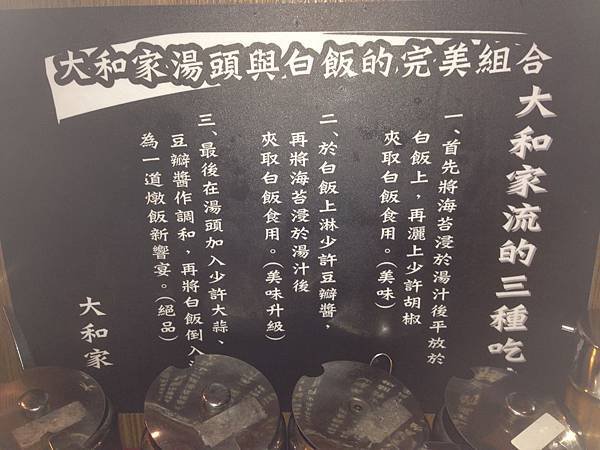 大和家湯頭與白飯的完美組合
大和家流的三種吃
一、首先將海苔浸於湯汁後平放於
白飯上，再灑上少許胡椒
夾取白飯食用。（美味）
二、於白飯上淋少許豆瓣醬，
再將海苔浸於湯汁後
夾取白飯食用。（美味升級）
三、最後在湯頭加入少許大蒜、
豆瓣醬作調和，再將白飯倒入
為一道燉飯新響宴。（絕品）
大和家